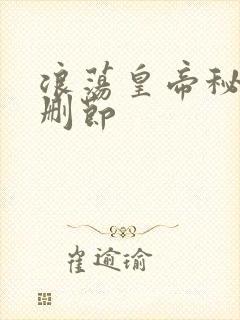 浪荡皇帝秘
删节
崔逾瑜